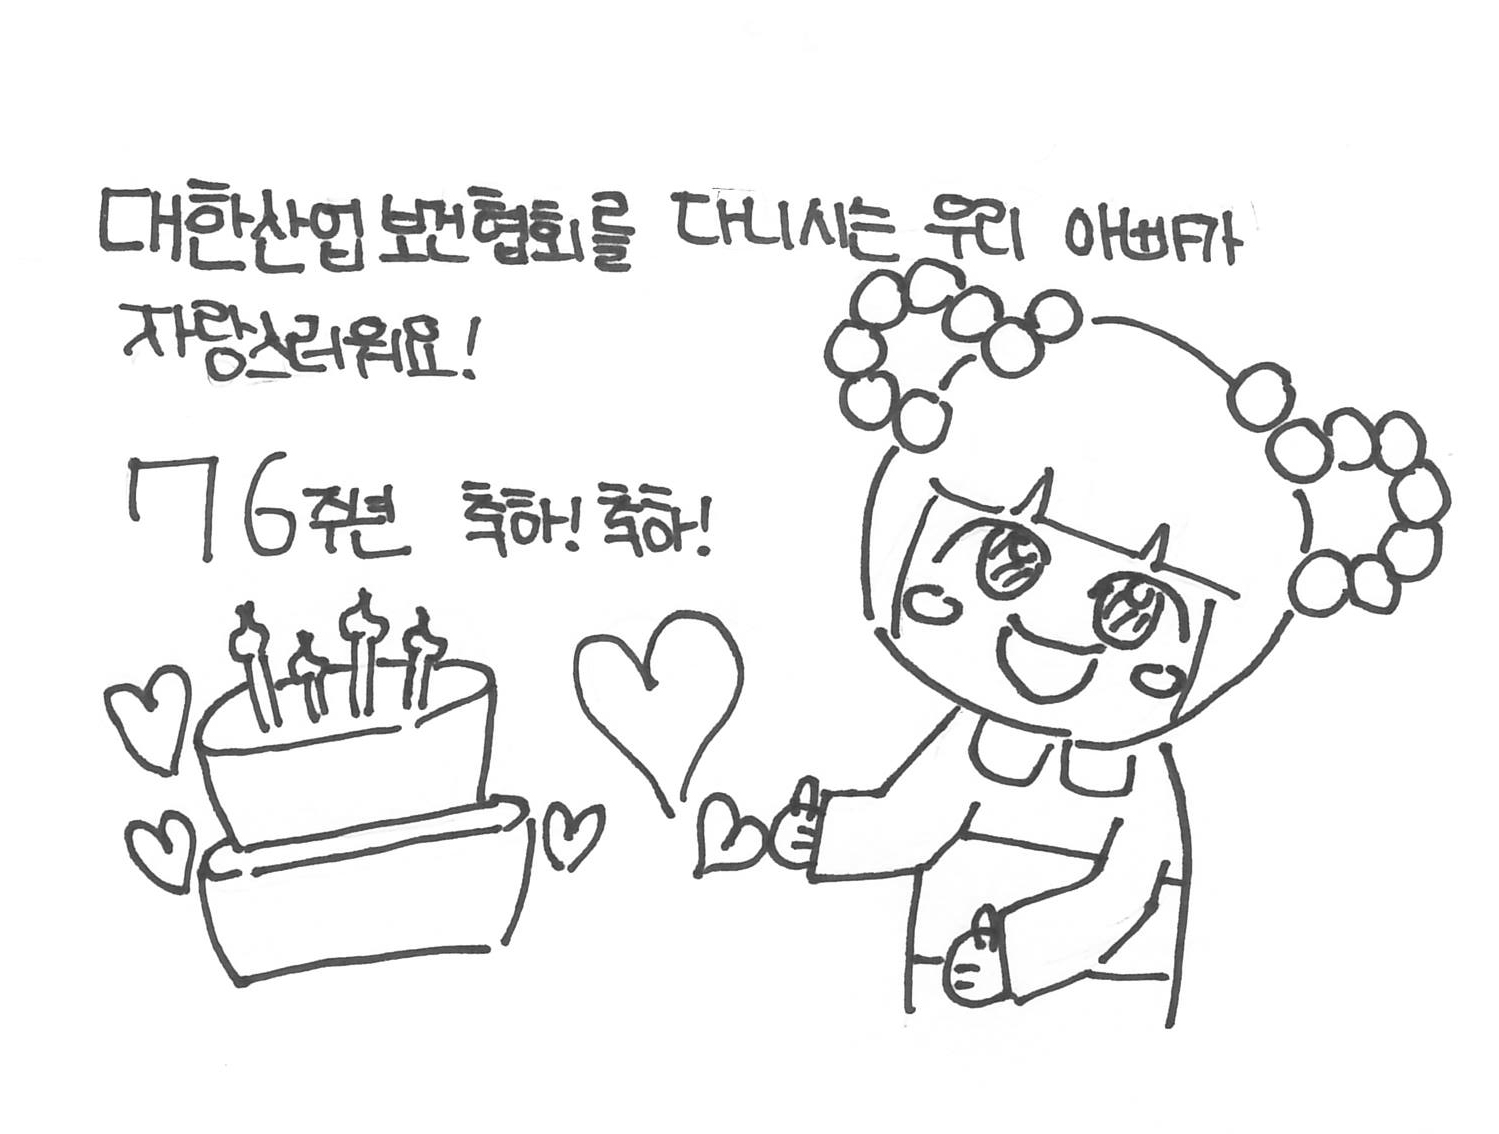 대한산업보건협회를 다니시는 우리 아빠가
자랑스러워요!
76주년 축하! 축하!